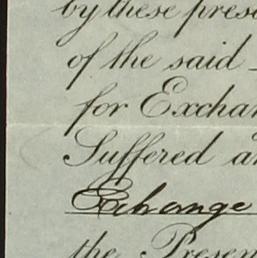 by these prese
of the said
for Exchan
Suffered an
Exchange
the Presen